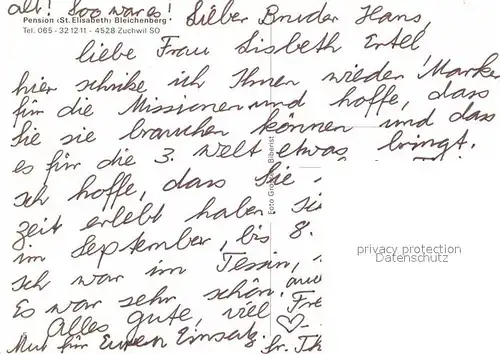 alt! Soo war es! Lieber Bruder Hans,
Pension (St. Elisabeth) Bleichenberg
Tel. 065 - 32 12 11 - 4528 Zuchwil SO
liebe Frau Lisbeth Ertel
hier schribe ich Ihnen wieder! Marken
für die Missionen und hoffe, dass
Sie sie brauchen können und das
es für die 3. Welt etwas bringt.
Ich hoffe, dass Sie
zeit erlebt haben. Sie
im September, bis 8.
Ich war im Tessin,
Es war sehr schön, auc
Alles gute, viel Fre
Mut für Euren Einsatz.
Foto Gro Biberist
privacy protection
Datenschutz